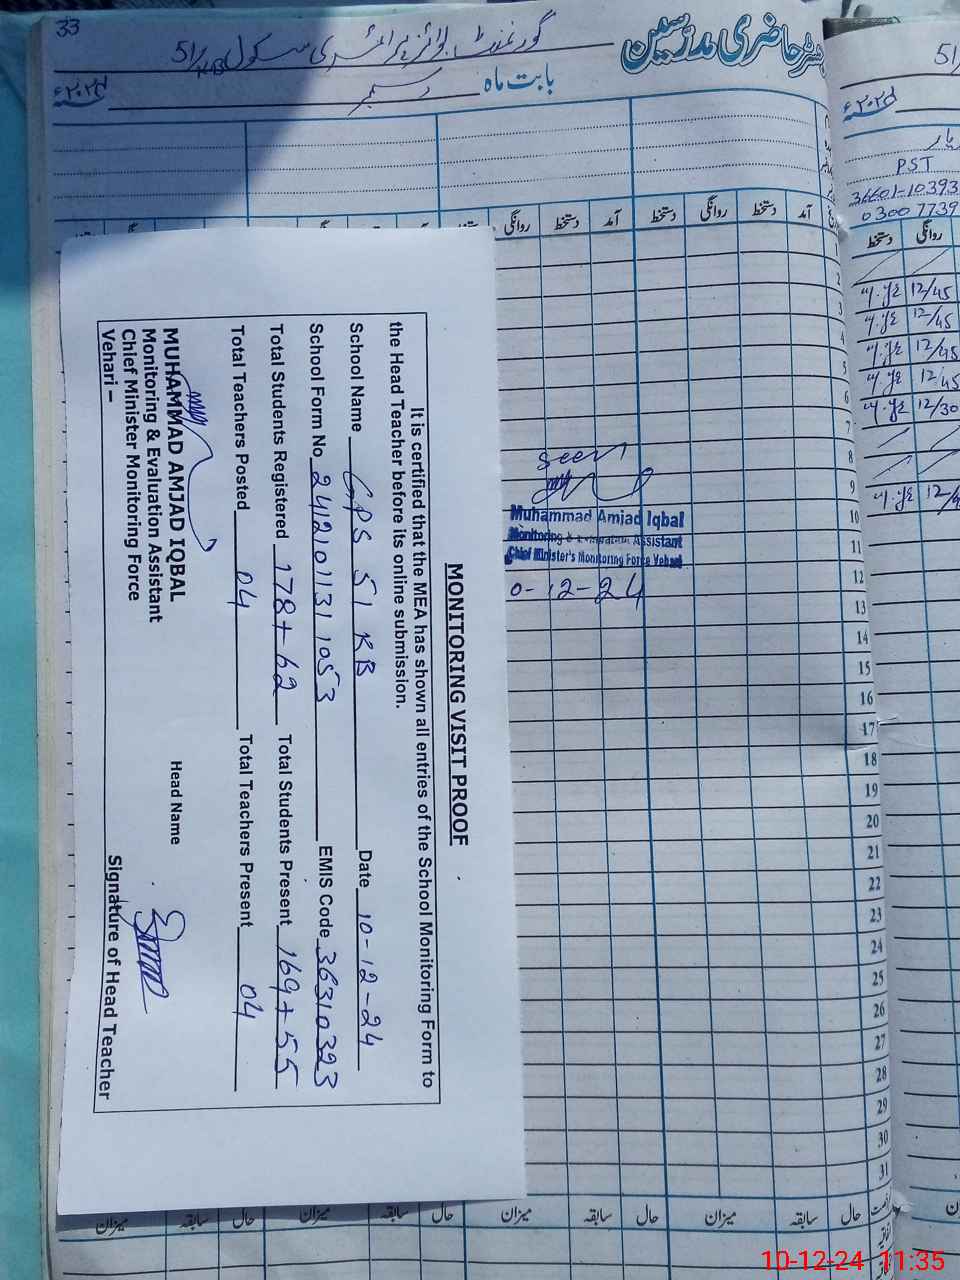 33
رجسٹر حاضری مدرسین
گورنمنٹ بوائز پرائمری سکول 51/KB
بابت ماہ دسمبر ۲۰۲۴ء
آمد دستخط روانگی دستخط آمد دستخط روانگی
1
2
3
4
5
6
7
8
9
10
11
12
13
14
15
16
17
18
19
20
21
22
23
24
25
26
27
28
29
30
31
Seen
Muhammad Amjad Iqbal
Monitoring & Evaluation Assistant
Chief Minister's Monitoring Force Vehari
0-12-24
MONITORING VISIT PROOF
It is certified that the MEA has shown all entries of the School Monitoring Form to
the Head Teacher before its online submission.
School Name GPS 51 KB Date 10-12-24
School Form No 2412101131 1053 EMIS Code 36310323
Total Students Registered 178+62 Total Students Present 169+55
Total Teachers Posted 04 Total Teachers Present 04
MUHAMMAD AMJAD IQBAL Head Name
Monitoring & Evaluation Assistant
Chief Minister Monitoring Force
Vehari – Signature of Head Teacher
حال سابقہ میزان حال سابقہ میزان حال سابقہ میزان حال سابقہ میزان
51/
PST
36601-10393
0300 7739
روانگی دستخط
12/45
12/45
12/45
12/45
12/30
12/4
10-12-24 11:35